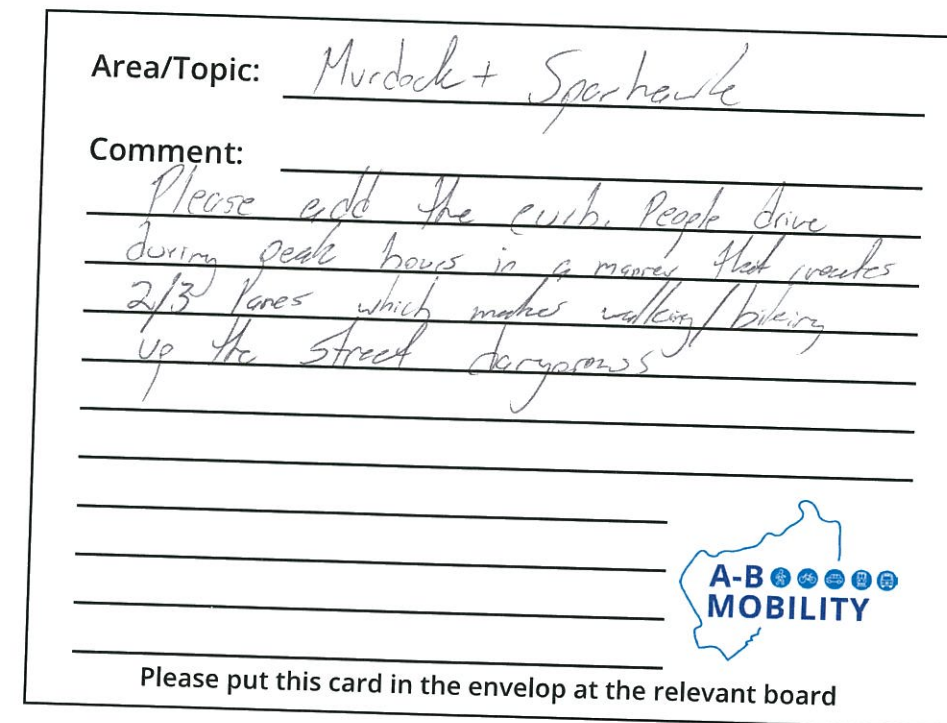 Area/Topic: Murdock + Sparhawk
Comment:
Please add the curb. People drive
during peak hours in a manner that creates
2/3 lanes which makes walking/biking
up the street dangerous
A-B
MOBILITY
Please put this card in the envelop at the relevant board